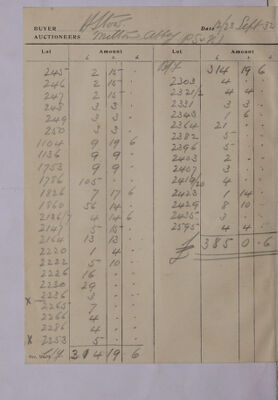 BUYER
AUCTIONEERS
Milton Abbey
Date 12/23 Sept. 32
Lot Amount
£ s. d.
245 2 15 -
246 2 15 -
247 2 15 -
248 3 3 -
249 3 3 -
250 3 3 -
1104 9 19 6
1136 9 9 -
1753 9 9 -
1786 105 -
1826 7 17 6
1860 56 14 -
2136/7 4 14 6
2147 5 15 -
2164 13 13 -
2220 1 4 -
2222 5 10 -
2226 16 -
2230 29 -
x 2236 3 -
2265 7 -
2266 4 -
2286 4 -
x 2253 5 -
C/f 314 19 6
Lot Amount
£ s. d.
B/f 314 19 6
2303 4 -
2321/2 4 4 -
2331 3 3 -
2343 1 6 -
2364 21 -
2382 5 -
2396 5 -
2403 2 -
2407 3 -
2419/20 4 -
2423 1 14 -
2429 8 10 -
2435 3 -
2595 4 4 -
£ 385 0 6